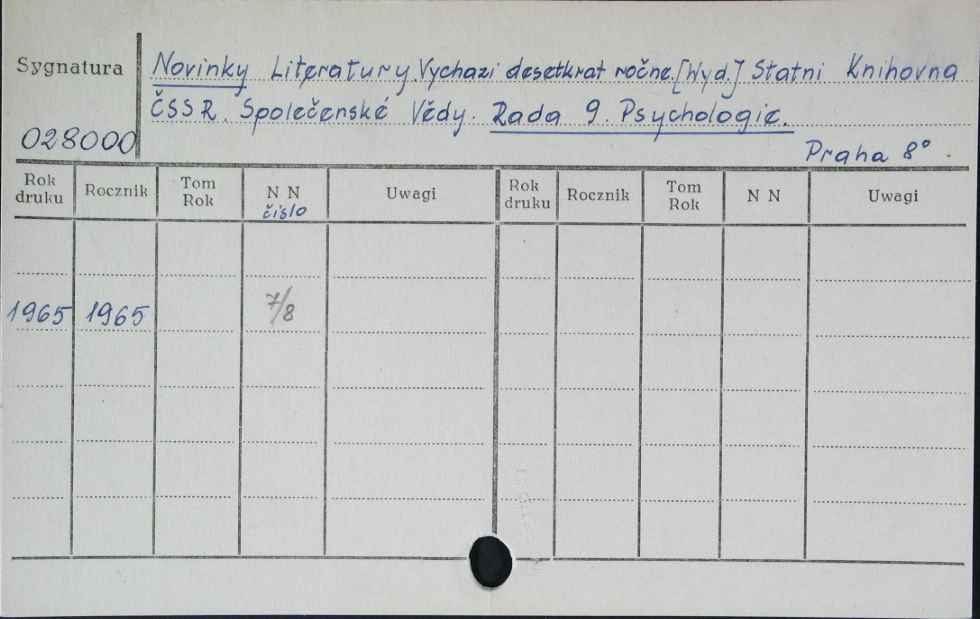 Sygnatura
Novinky Literatury. Vychazi desetkrat ročne. [Wyd.] Statni Knihovna
ČSSR. Společenské Vědy. Rada 9. Psychologie.
028000
Praha 8°.
Rok druku Rocznik Tom Rok N N čislo Uwagi Rok druku Rocznik Tom Rok N N Uwagi
1965 1965 7/8